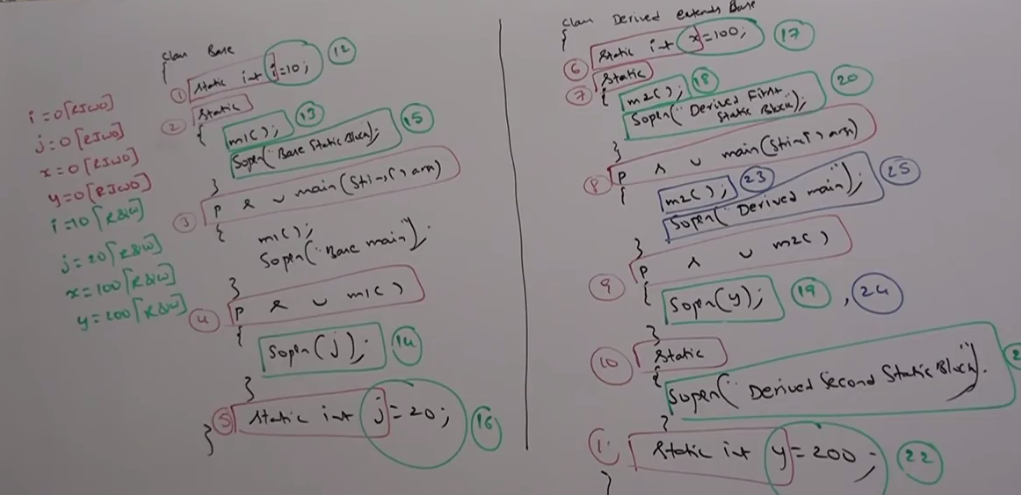 i=0[RIWO]
j=0[RIWO]
x=0[RIWO]
y=0[RIWO]
i=10[R&W]
j=20[R&W]
x=100[R&W]
y=200[R&W]
class Base
{
① static int i=10; ⑫
② static
{
m1(); ⑬
Sopln("Base Static Block); ⑮
}
③ P & v main(String[] args)
{
m1();
Sopln("Base main);
}
④ P & v m1()
{
Sopln(j); ⑭
}
⑤ static int j=20; ⑯
}
class Derived extends Base
{
⑥ static int x=100; ⑰
⑦ static
{ m2(); ⑱
Sopln("Derived First
Static Block); ⑳
}
⑧ P s v main(String[] args)
{
m2(); ㉓
Sopln("Derived main"); ㉕
}
⑨ P s v m2()
{
Sopln(y); ⑲, ㉔
}
⑩ static
{
Sopln("Derived Second Static Block").
}
static int y=200; ㉒
}